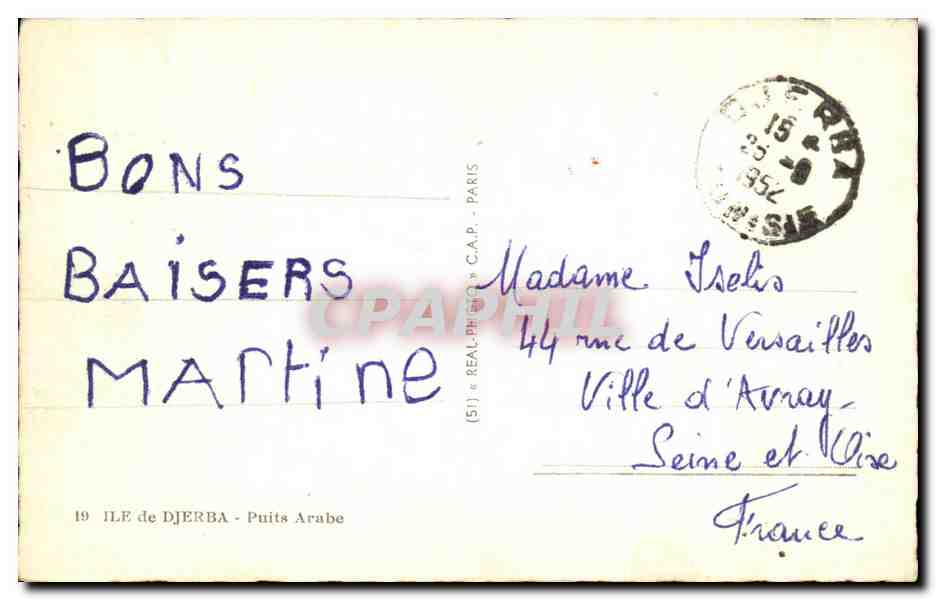 BONS
BAISERS
MARtine
19 ILE de DJERBA - Puits Arabe
(51) « REAL-PHOTO » C.A.P. - PARIS
CPAPHIL
DJERBA
15
1952
TUNISIE
Madame Iselis
44 rue de Versailles
Ville d'Avray
Seine et Oise
France